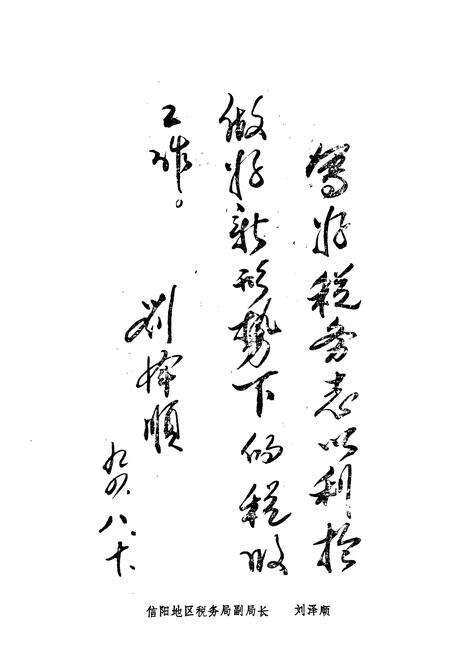 写好税务志以利于
做好新形势下的税收
工作。
刘择顺
九四.八.十.
信阳地区税务局副局长 刘泽顺